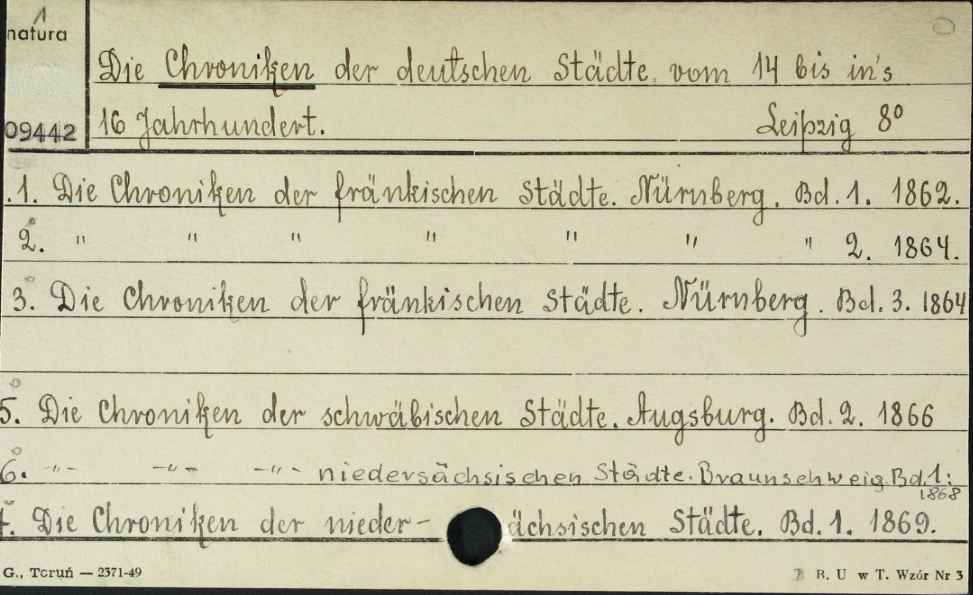 1
natura
Die Chroniken der deutschen Städte vom 14 bis in's
09442 16 Jahrhundert. Leipzig 8º
1. Die Chroniken der fränkischen Städte. Nürnberg. Bd. 1. 1862.
2. " " " " " " " 2. 1864.
3. Die Chroniken der fränkischen Städte. Nürnberg. Bd. 3. 1864
5. Die Chroniken der schwäbischen Städte. Augsburg. Bd. 2. 1866
6. -"- -"- -"- niedersächsischen Städte. Braunschweig Bd. 1:
1868
Die Chroniken der nieder- ächsischen Städte. Bd. 1. 1869.
G., Toruń — 2371-49 B. U w T. Wzór Nr 3